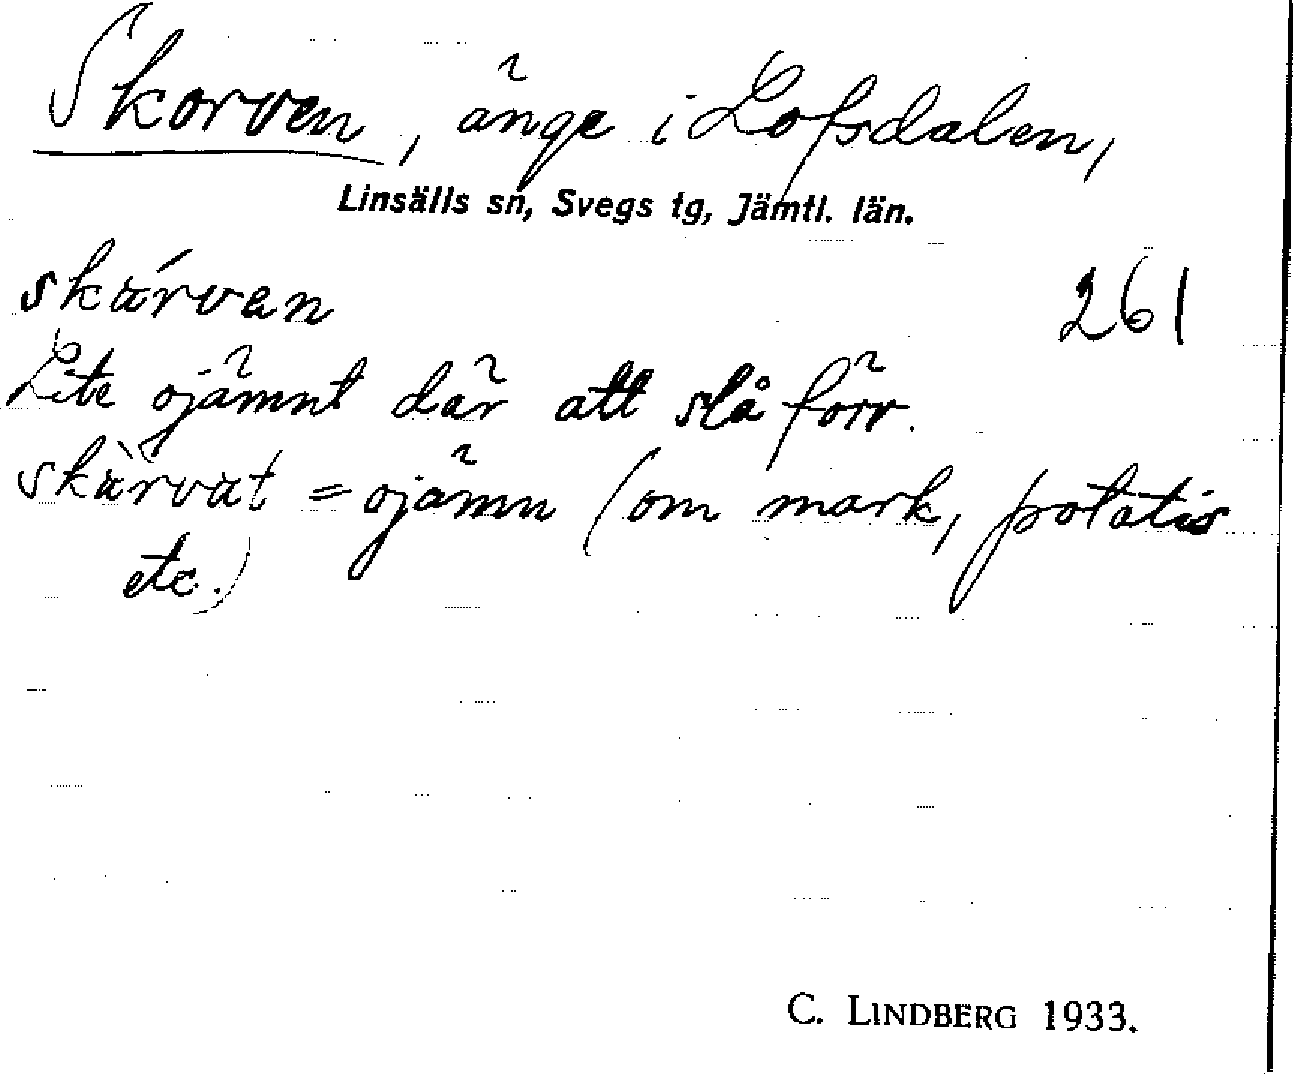 Skorven, änge i Lofsdalen,
Linsälls sn, Svegs tg, Jämtl. län.
skàrvan 261
Lite ojämnt där att slå förr.
skàrvat = ojämn (om mark, potatis
etc.)
C. LINDBERG 1933.